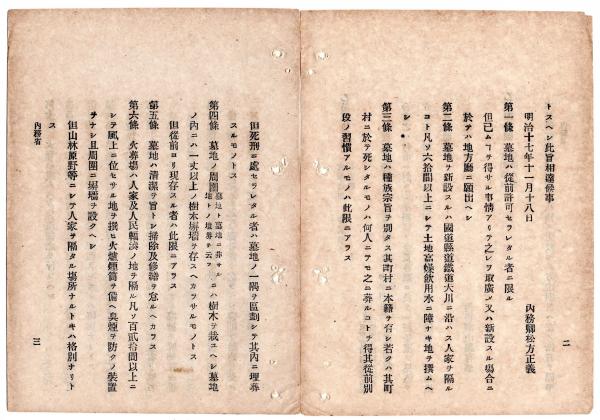 二
トスヘシ此旨相達候事
明治十七年十一月十八日
內務卿松方正義
第一條 墓地ハ從前許可セラレタル者ニ限ル
但已ムヿヲ得サル事情アリテ之レヲ取廣メ又ハ新設スル塲合ニ
於テハ地方廳ニ願出ヘシ
第二條 墓地ヲ新設スルハ國道縣道鐵道大川ニ沿ハス人家ヲ隔ル
コト凡ソ六拾間以上ニシテ土地高燥飮用水ニ障ナキ地ヲ撰ムヘ
シ
第三條 墓地ハ種族宗旨ヲ別タス其町村ニ本籍ヲ有シ若クハ其町
村ニ於テ死シタルモノハ何人ニテモ之ニ葬ルコトヲ得其從前別
段ノ習慣アルモノハ此限ニアラス
但死刑ニ處セラレタル者ハ墓地ノ一隅ヲ區劃シテ其內ニ埋葬
スルモノトス
第四條 墓地ノ周圍
ニハ樹木ヲ栽ヱヘシ墓地
ノ內ニハ一丈以上ノ樹木墻壁ヲ存スヘカラサルモノトス
但從前ヨリ現存スル者ハ此限ニアラス
第五條 墓地ハ清潔ヲ旨トシ掃除及修繕ヲ怠ルヘカラス
第六條 火葬塲ハ人家及人民輻湊ノ地ヲ隔ル凡ソ百貳拾間以上ニ
シテ風上ニ位セサル地ヲ撰ヒ火爐烟筒ヲ備ヘ臭煙ヲ防クノ裝置
ヲナシ且周圍ニ墻壁ヲ設クヘシ
但山林原野等ニシテ人家ヲ隔タル塲所ナルトキハ格別ナリト
ス
內務省
三